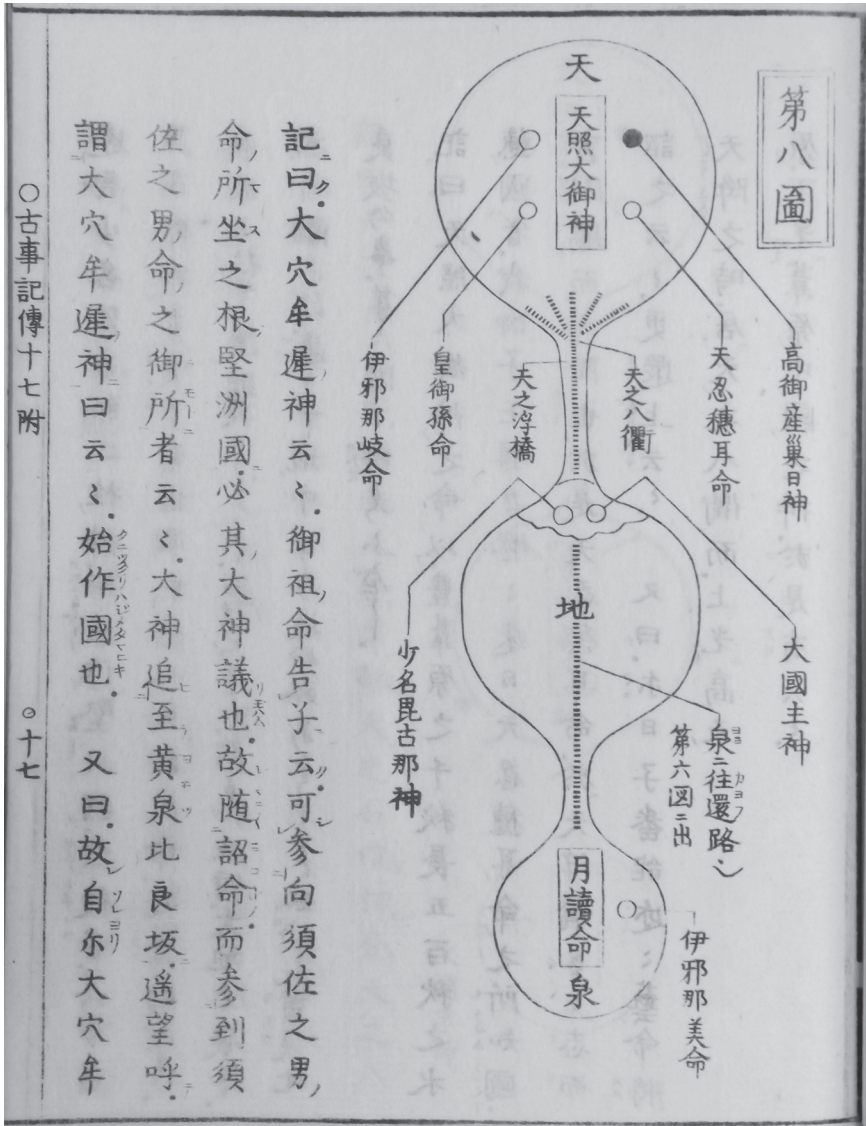 第八圖
天
天照大御神
高御産巢日神
天忍穗耳命
天之八衢
天之浮橋
皇御孫命
伊邪那岐命
地
大國主神
少名毘古那神
泉ニ往還路
ヨミ カヨフ
第六図ニ出
月讀命
泉
伊邪那美命
記曰大穴牟遲神云〻御祖命告子云可参向須佐之男
命所坐之根堅洲國必其大神議也故随詔命而参到須
佐之男命之御所者云〻大神追至黄泉比良坂遥望呼
謂大穴牟遲神曰云〻始作國也 又曰故自尓大穴牟
○古事記傳十七附
○十七